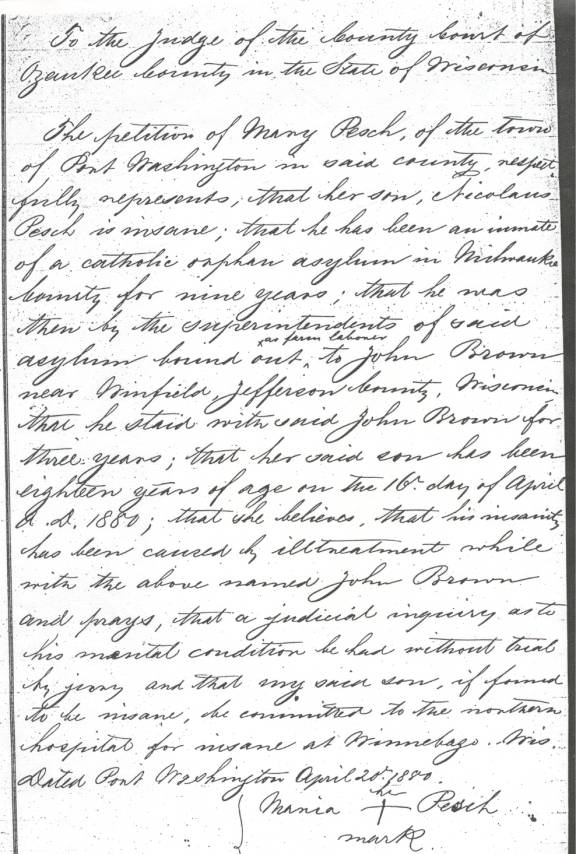 To the Judge of the County Court of
Ozaukee County in the State of Wisconsin
The petition of Mary Pesch, of the town
of Port Washington in said county, respect
fully represents, that her son, Nicolaus
Pesch is insane; that he has been an inmate
of a catholic orphan asylum in Milwaukee
County for nine years; that he was
then by the superintendents of said
as farm laborer
asylum bound out ^ to John Brown
near Winfield, Jefferson County, Wisconsin,
that he staid with said John Brown for
three years; that her said son has been
eighteen years of age on the 16th day of April
A. D. 1880; that she believes, that his insanity
has been caused by illtreatment while
with the above named John Brown
and prays, that a judicial inquiry as to
his mental condition be had without trial
by jury and that my said son, if found
to be insane, be committed to the northern
hospital for insane at Winnebago. Wis.
Dated Port Washington April 20th 1880.
her
Maria + Pesch
mark